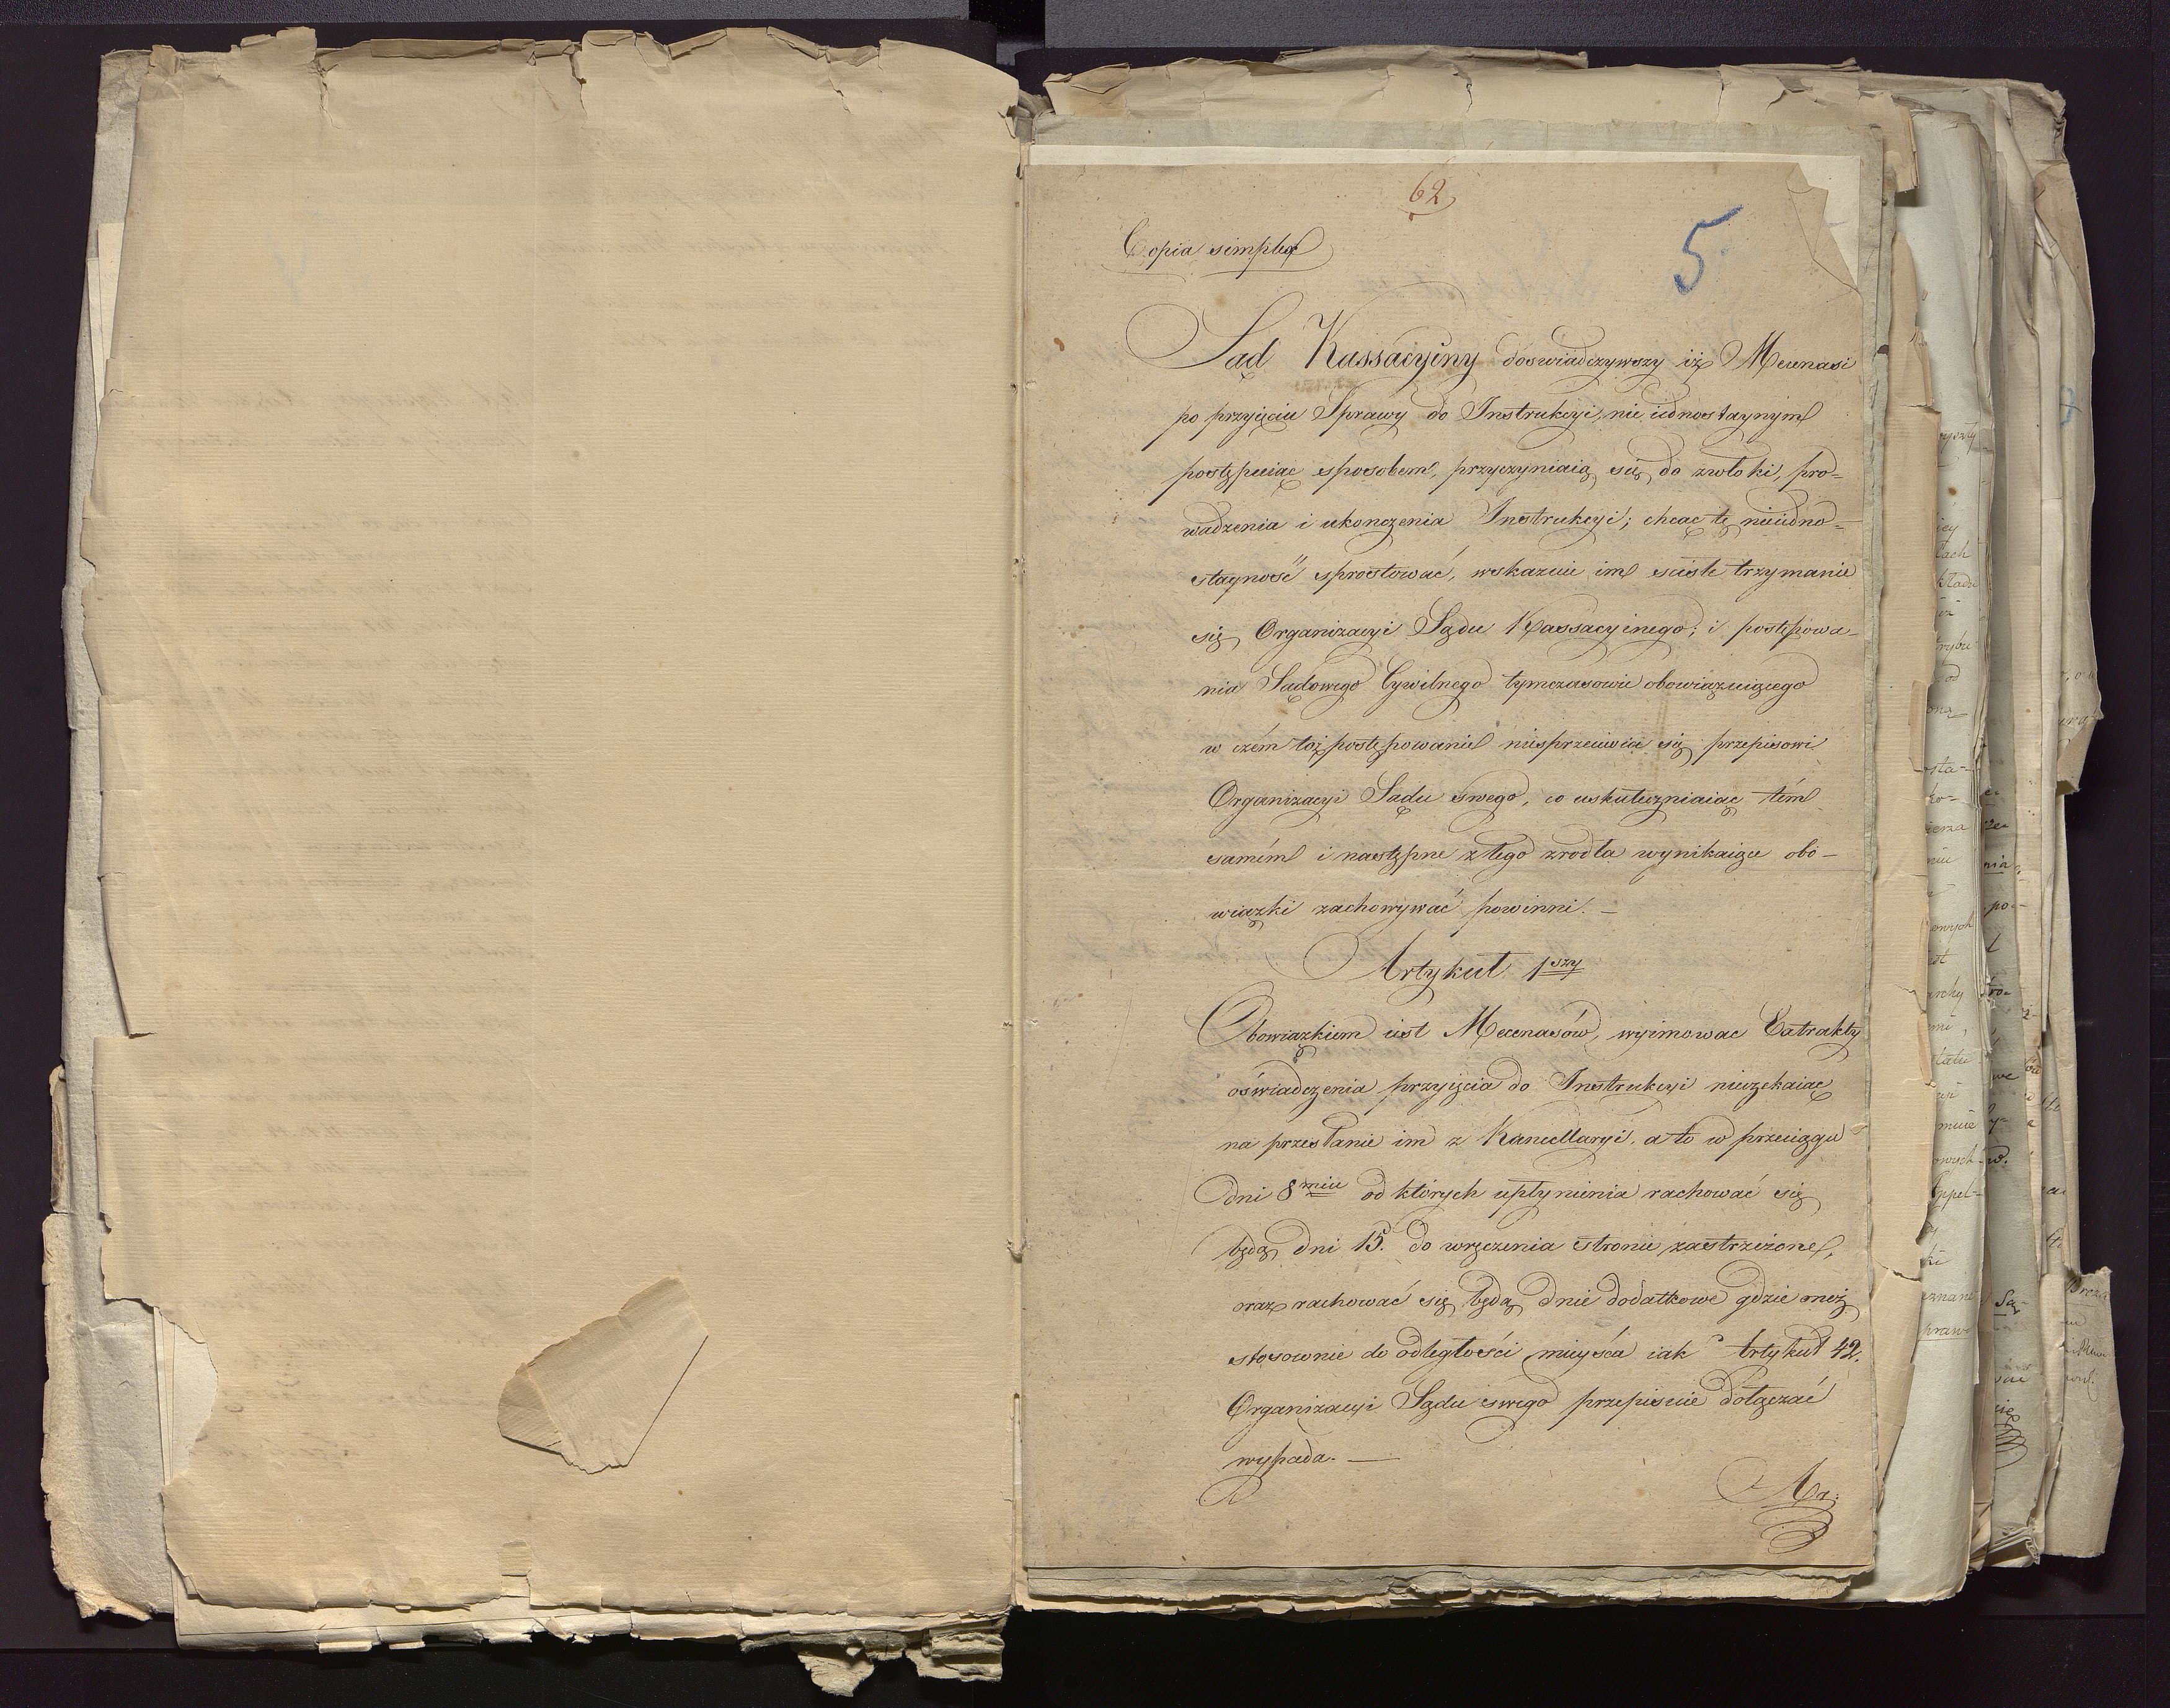 62
5.
Copia simplex
Sąd Kassacyiny doswiadczywszy iż Mecenasi
po przyięciu Sprawy do Instrukcyi, nie iednostaynym
postępuiąc sposobem, przyczyniaią się do zwłoki, pro=
wadzenia i ukonczenia Instrukcyi; chcąc tę nieiedno=
stayność sprostować, wskazuie im scisłe trzymanie
się Organizacyi Sądu Kassacyinego; i postępowa-
nia Sądowego Cywilnego tymczasowie obowiązuiącego
w czém toż postępowanie niesprzeciwia się przepisowi
Organizacyi Sądu swego, co uskuteczniaiąc tém
samém i następne z tego zrodła wynikaiące obo-
wiązki zachowywać powinni. —
Artykuł 1szy
Obowiązkiem iest Mecenasów, wyimowac Extrakty
oświadczenia przyięcia do Instrukcyi nieczekaiąc
na przesłanie im z Kancellaryi, a to w przeciągu
dni 8miu od których upłynienia rachować się
będą dni 15. do wręczenia stronie zastrzeżone,
oraz rachować się będą dnie dodatkowe gdzie
stosownie do odległości mieysca iak Artykuł 42.
Organizacyi Sądu swego przepisuie dołączać
wypada. —
Ar: